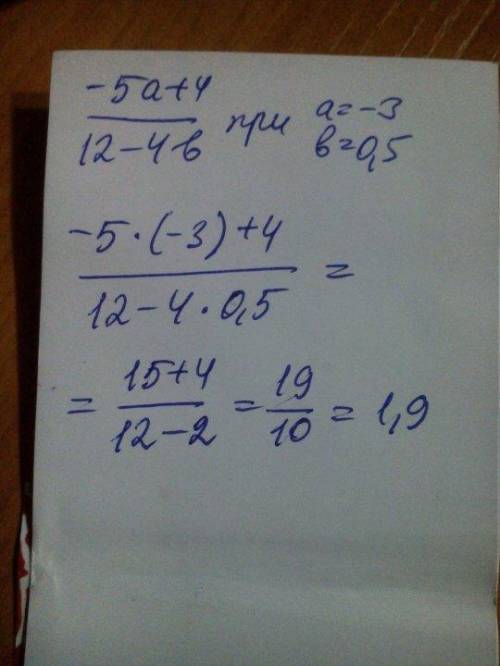 -5a+4
12-4в при a=-3
в=0,5
-5·(-3)+4
12-4·0,5 =
= 15+4
12-2 = 19
10 = 1,9